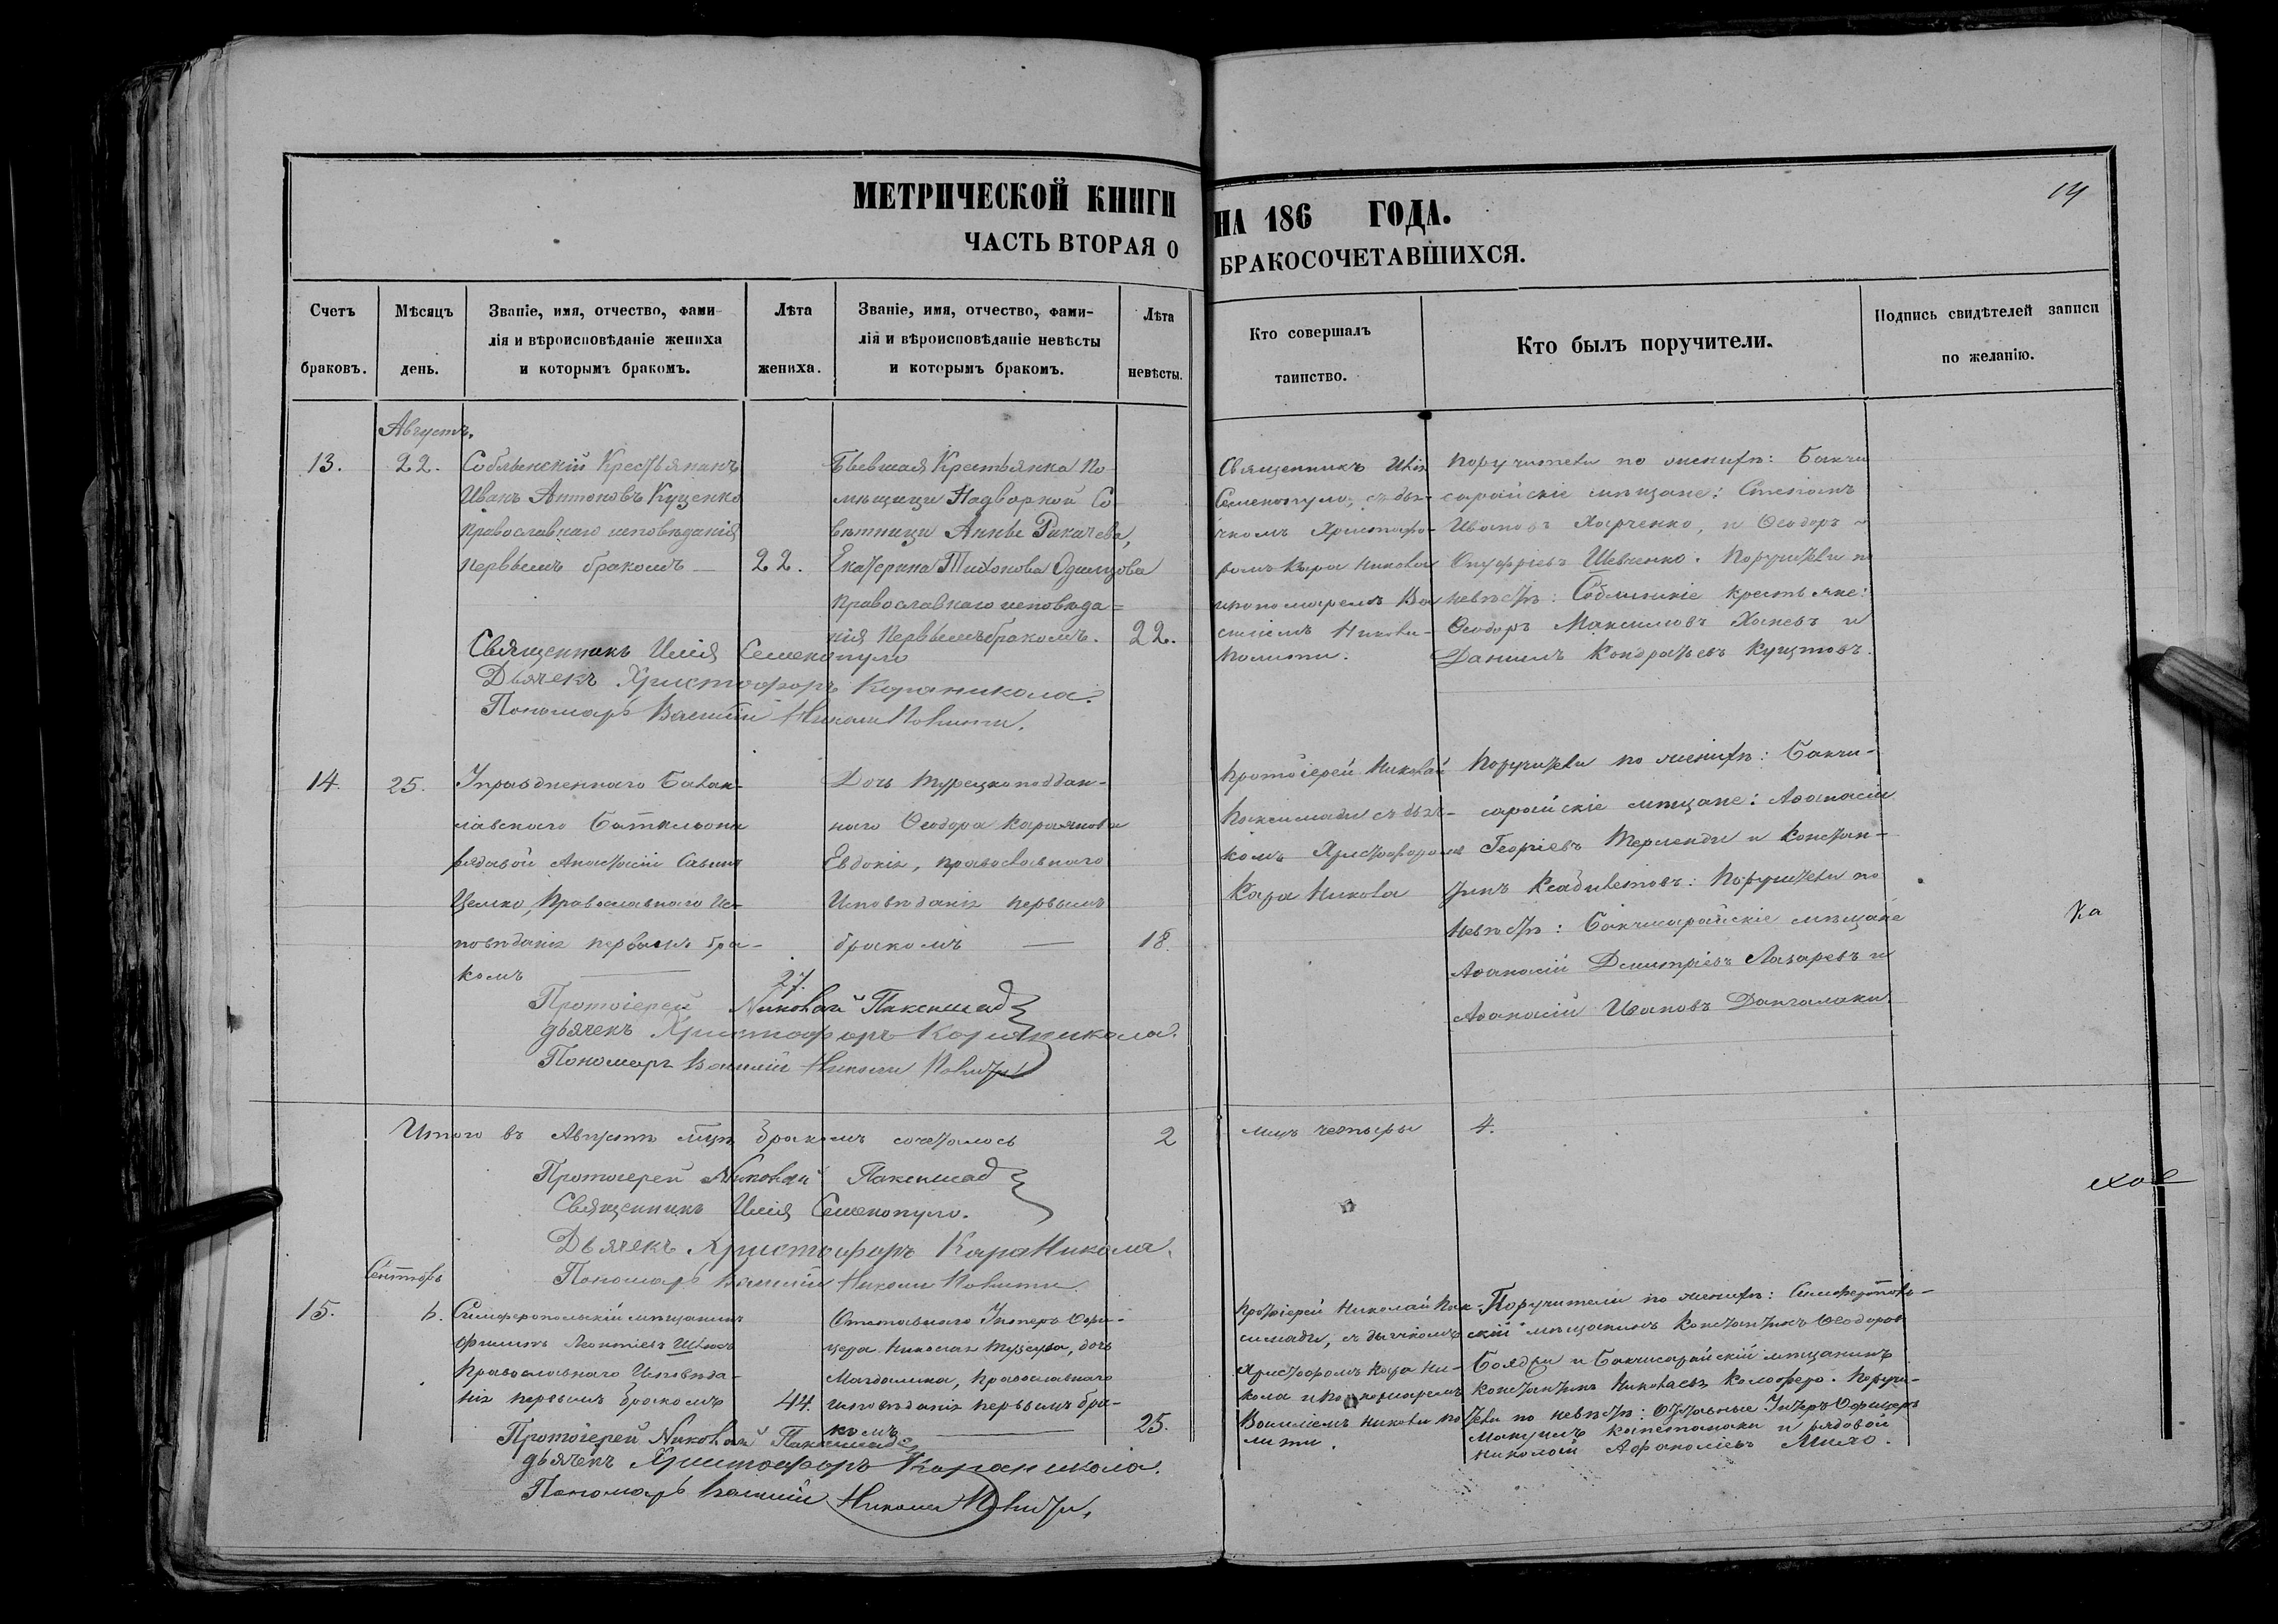 14
МЕТРИЧЕСКОЙ КНИГИ НА 186 ГОДА.
ЧАСТЬ ВТОРАЯ О БРАКОСОЧЕТАВШИХСЯ.
Счетъ браковъ.
Мѣсяцъ день.
Званіе, имя, отчество, фами-
лія и вѣроисповѣданіе жениха
и которымъ бракомъ.
Лѣта жениха.
Званіе, имя, отчество, фами-
лія и вѣроисповѣданіе невѣсты
и которымъ бракомъ.
Лѣта невѣсты.
Кто совершалъ
таинство.
Кто былъ поручители.
Подпись свидѣтелей записи
по желанію.
Августъ.
13.
22.
Крестьянинъ
Иванъ Антоновъ Куценко
православнаго исповѣданія
первымъ бракомъ —
22.
Бывшая Крестьянка По-
мѣщицы Надворной Со-
вѣтницы Анны
Екатерина Тихонова Одинцова
православнаго исповѣда=
нія первымъ бракомъ.
22.
Священникъ Илія
Семенопуло, съ дья-
чкомъ Христофо-
ромъ Кара Никола
и пономаремъ Ва
силіемъ Николи-
Полити.
Поручители по женихѣ: Бакчи
сарайскіе мѣщане: Степанъ
Ивановъ Харченко, и Ѳеодоръ
Онуфріевъ Шевченко. Поручители по
невѣстѣ: крестьяне:
Ѳеодоръ Максимовъ и
Даніилъ Кондратьевъ
Священникъ Илія Семенопуло
Дьячекъ Христофоръ Караникола.
Пономарь Василій Николи Полити.
14.
25.
Упраздненнаго Балак-
лавскаго Баталіона
рядовой Анастасій Савинъ
православнаго Ис-
повѣданія первымъ бра-
комъ —
27.
Дочь Турецкоподдан-
наго Ѳеодора
Евдокія, православнаго
Исповѣданія первымъ
бракомъ —
18.
Протоіерей Николай
Паксимади съ дьяч-
комъ Христофоромъ
Кара Никола
Поручители по женихѣ: Бакчи-
сарайскіе мѣщане: Аѳанасій
Георгіевъ Терленди и Констан-
тинъ Поручители по
невѣстѣ: Бакчисарайскіе мѣщане
Аѳанасій Дмитріевъ Лазаревъ и
Аѳанасій Ивановъ
Протоіерей Николай Паксимад
дьячекъ Христофоръ Караникола.
Пономарь Василій Николи Полити
Итого въ Августѣ мцѣ бракомъ сочеталось 2 лицъ четыре 4.
Протоіерей Николай Паксимад
Священникъ Илія Семенопуло.
Дьячекъ Христофоръ КараНикола.
Пономарь Василій Николи Полити.
Сентябрь
15.
Симферопольскій мѣщанинъ
Филипъ Леонтіевъ
Православнаго Исповѣда-
нія первымъ бракомъ
44.
Отставнаго Унтеръ Офи-
цера Николая дочь
Магдалина, православнаго
исповѣданія первымъ бра-
комъ —
25.
Протоіерей Николай Пак-
симади, съ дьячкомъ
Христофоромъ Кара Ни-
кола и пономаремъ
Василіемъ Николи По
лити.
Поручители по женихѣ: Симферополь-
скій мѣщанинъ Константинъ Ѳеодоровъ
и Бакчисарайскій мѣщанинъ
Константинъ Николаевъ Поручи-
тели по невѣстѣ: Отставные Унтеръ Офицеръ
и рядовой
Николай
Протоіерей Николай Паксимад
дьячекъ Христофоръ Караникола.
Пономарь Василій Николи Полити.